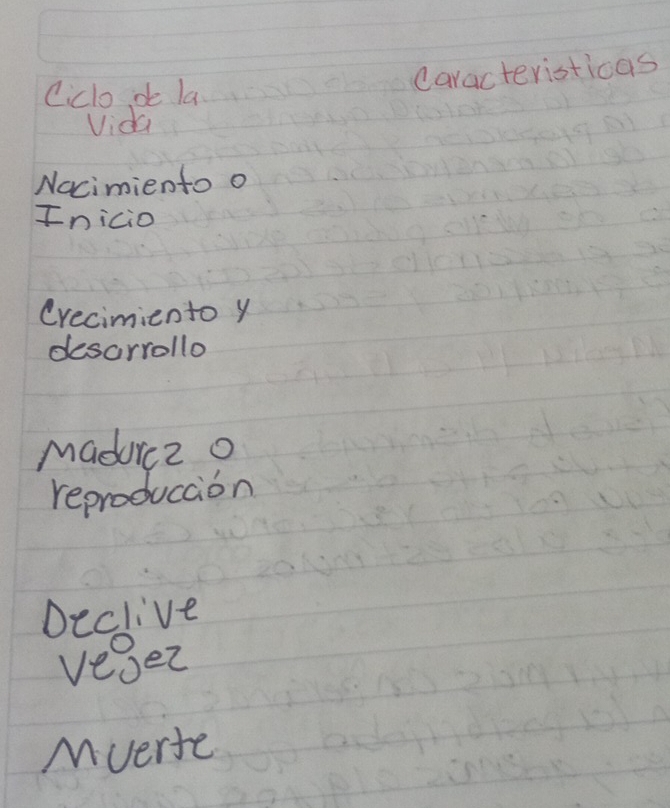 Ciclo de la
Vida
Caracteristicas
Nacimiento o
Inicio
Crecimiento y
desarrollo
Madurez o
reproducción
Declive
o
vejez
Muerte